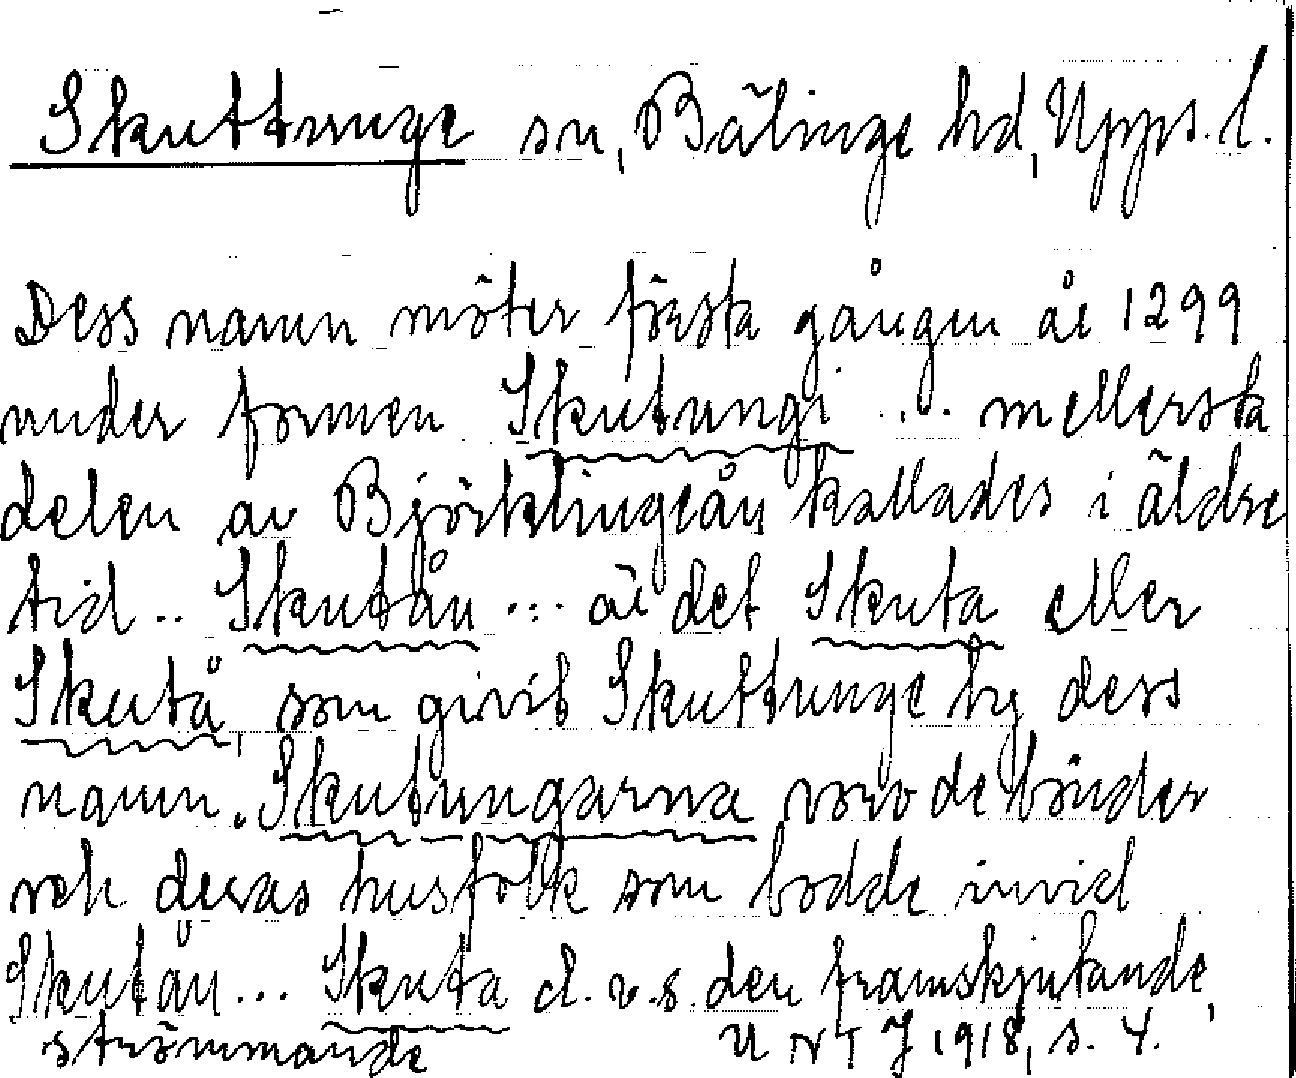 Skuttunge sn, Bälinge hd, Upps. l.
Dess namn möter första gången år 1299
under formen Skutungi .... mellersta
delen av Björklingeån kallades i äldre
tid .. Skutån ... är det Skuta eller
Skutå, som givit Skuttunge by dess
namn. Skutungarna voro de bönder
och deras husfolk som bodde invid
Skutån ... Skuta d. v. s. den framskjutande,
strömmande U N T J 1918, s. 4.